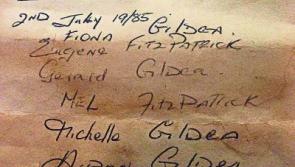 2ND July 19/85
FIONA GILDEA.
Eugene FITZPATRICK.
Gerard GILDEA.
MEL FITZPATRICK
Michelle GILDEA.
GILDEA